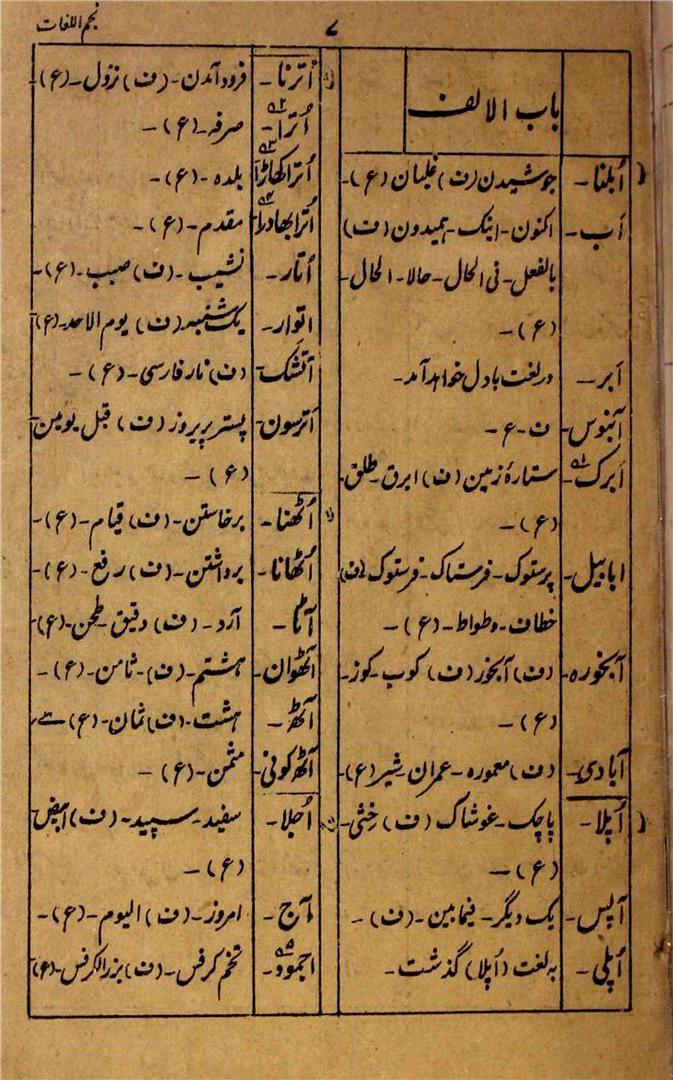 نجم اللغات
۷
باب الالف
اُبلنا۔ جوشیدن (ف) غلیان (ع)۔
اَب۔ اکنون۔ اینک۔ ہمیدون (ف)
بالفعل۔ فی الحال۔ حالا۔ الحال۔
(ع)۔
اَبر۔ در لغت بادل خواہد آمد۔
آبنوس۔ ف۔ ع۔
اَبرک۔ ستارۂ زمین (ف) ابرق۔ طلق۔
(ع)۔
ابابیل۔ پرستوک۔ فرستاک۔ فرستوک (ف)
خطاف۔ وطواط۔ (ع)۔
آبخورہ۔ (ف) آبخور (ف) کوب۔ کوز۔
(ع)۔
آبادی۔ (ف) معمورہ۔ عمران۔ (ع)۔
اُپلا۔ پاچک۔ غوشاک (ف) خثی۔
(ع)۔
آپس۔ یک دیگر۔ فیما بین۔ (ف)۔
اُپلی۔ بہ لغت (اُپلا) گذشت۔
اُترنا۔ فرود آمدن۔ (ف) نزول۔ (ع)۔
اُترا۔ صرفہ۔ (ع)۔
اُتراکھاڑا بلدہ۔ (ع)۔
اُترابھادرا مقدم۔ (ع)۔
اُتار۔ نشیب۔ (ف) صبب۔ (ع)۔
اتوار۔ یک شنبہ (ف) یوم الاحد۔ (ع)
آتشک۔ (ف) نار فارسی۔ (ع)۔
اَترسون۔ پستر پریروز (ف) قبل یومین
(ع)۔
اُٹھنا۔ برخاستن۔ (ف) قیام۔ (ع)۔
اُٹھانا۔ برداشتن۔ (ف) رفع۔ (ع)۔
آٹا۔ آرد۔ (ف) دقیق۔ طحن۔ (ع)
آٹھوان۔ ہشتم۔ (ف)۔ ثامن۔ (ع)۔
آٹھ۔ ہشت۔ (ف) ثمان۔ (ع)
آٹھ کونی۔ مثمن۔ (ع)۔
اُجلا۔ سفید۔ سپید۔ (ف) ابیض
(ع)۔
آج۔ امروز۔ (ف) الیوم۔ (ع)۔
اجمود۔ تخم کرفس۔ (ف) بزر الکرفس۔ (ع)